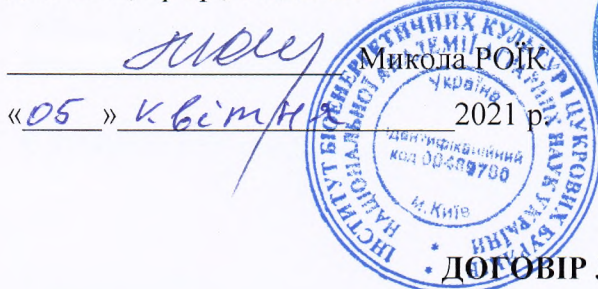 Микола РОЇК
«05» квітня 2021 р.
ІНСТИТУТ БІОЕНЕРГЕТИЧНИХ КУЛЬТУР І ЦУКРОВИХ БУРЯКІВ
НАЦІОНАЛЬНОЇ АКАДЕМІЇ АГРАРНИХ НАУК УКРАЇНИ
Україна
Ідентифікаційний
код
м. Київ
ДОГОВІР